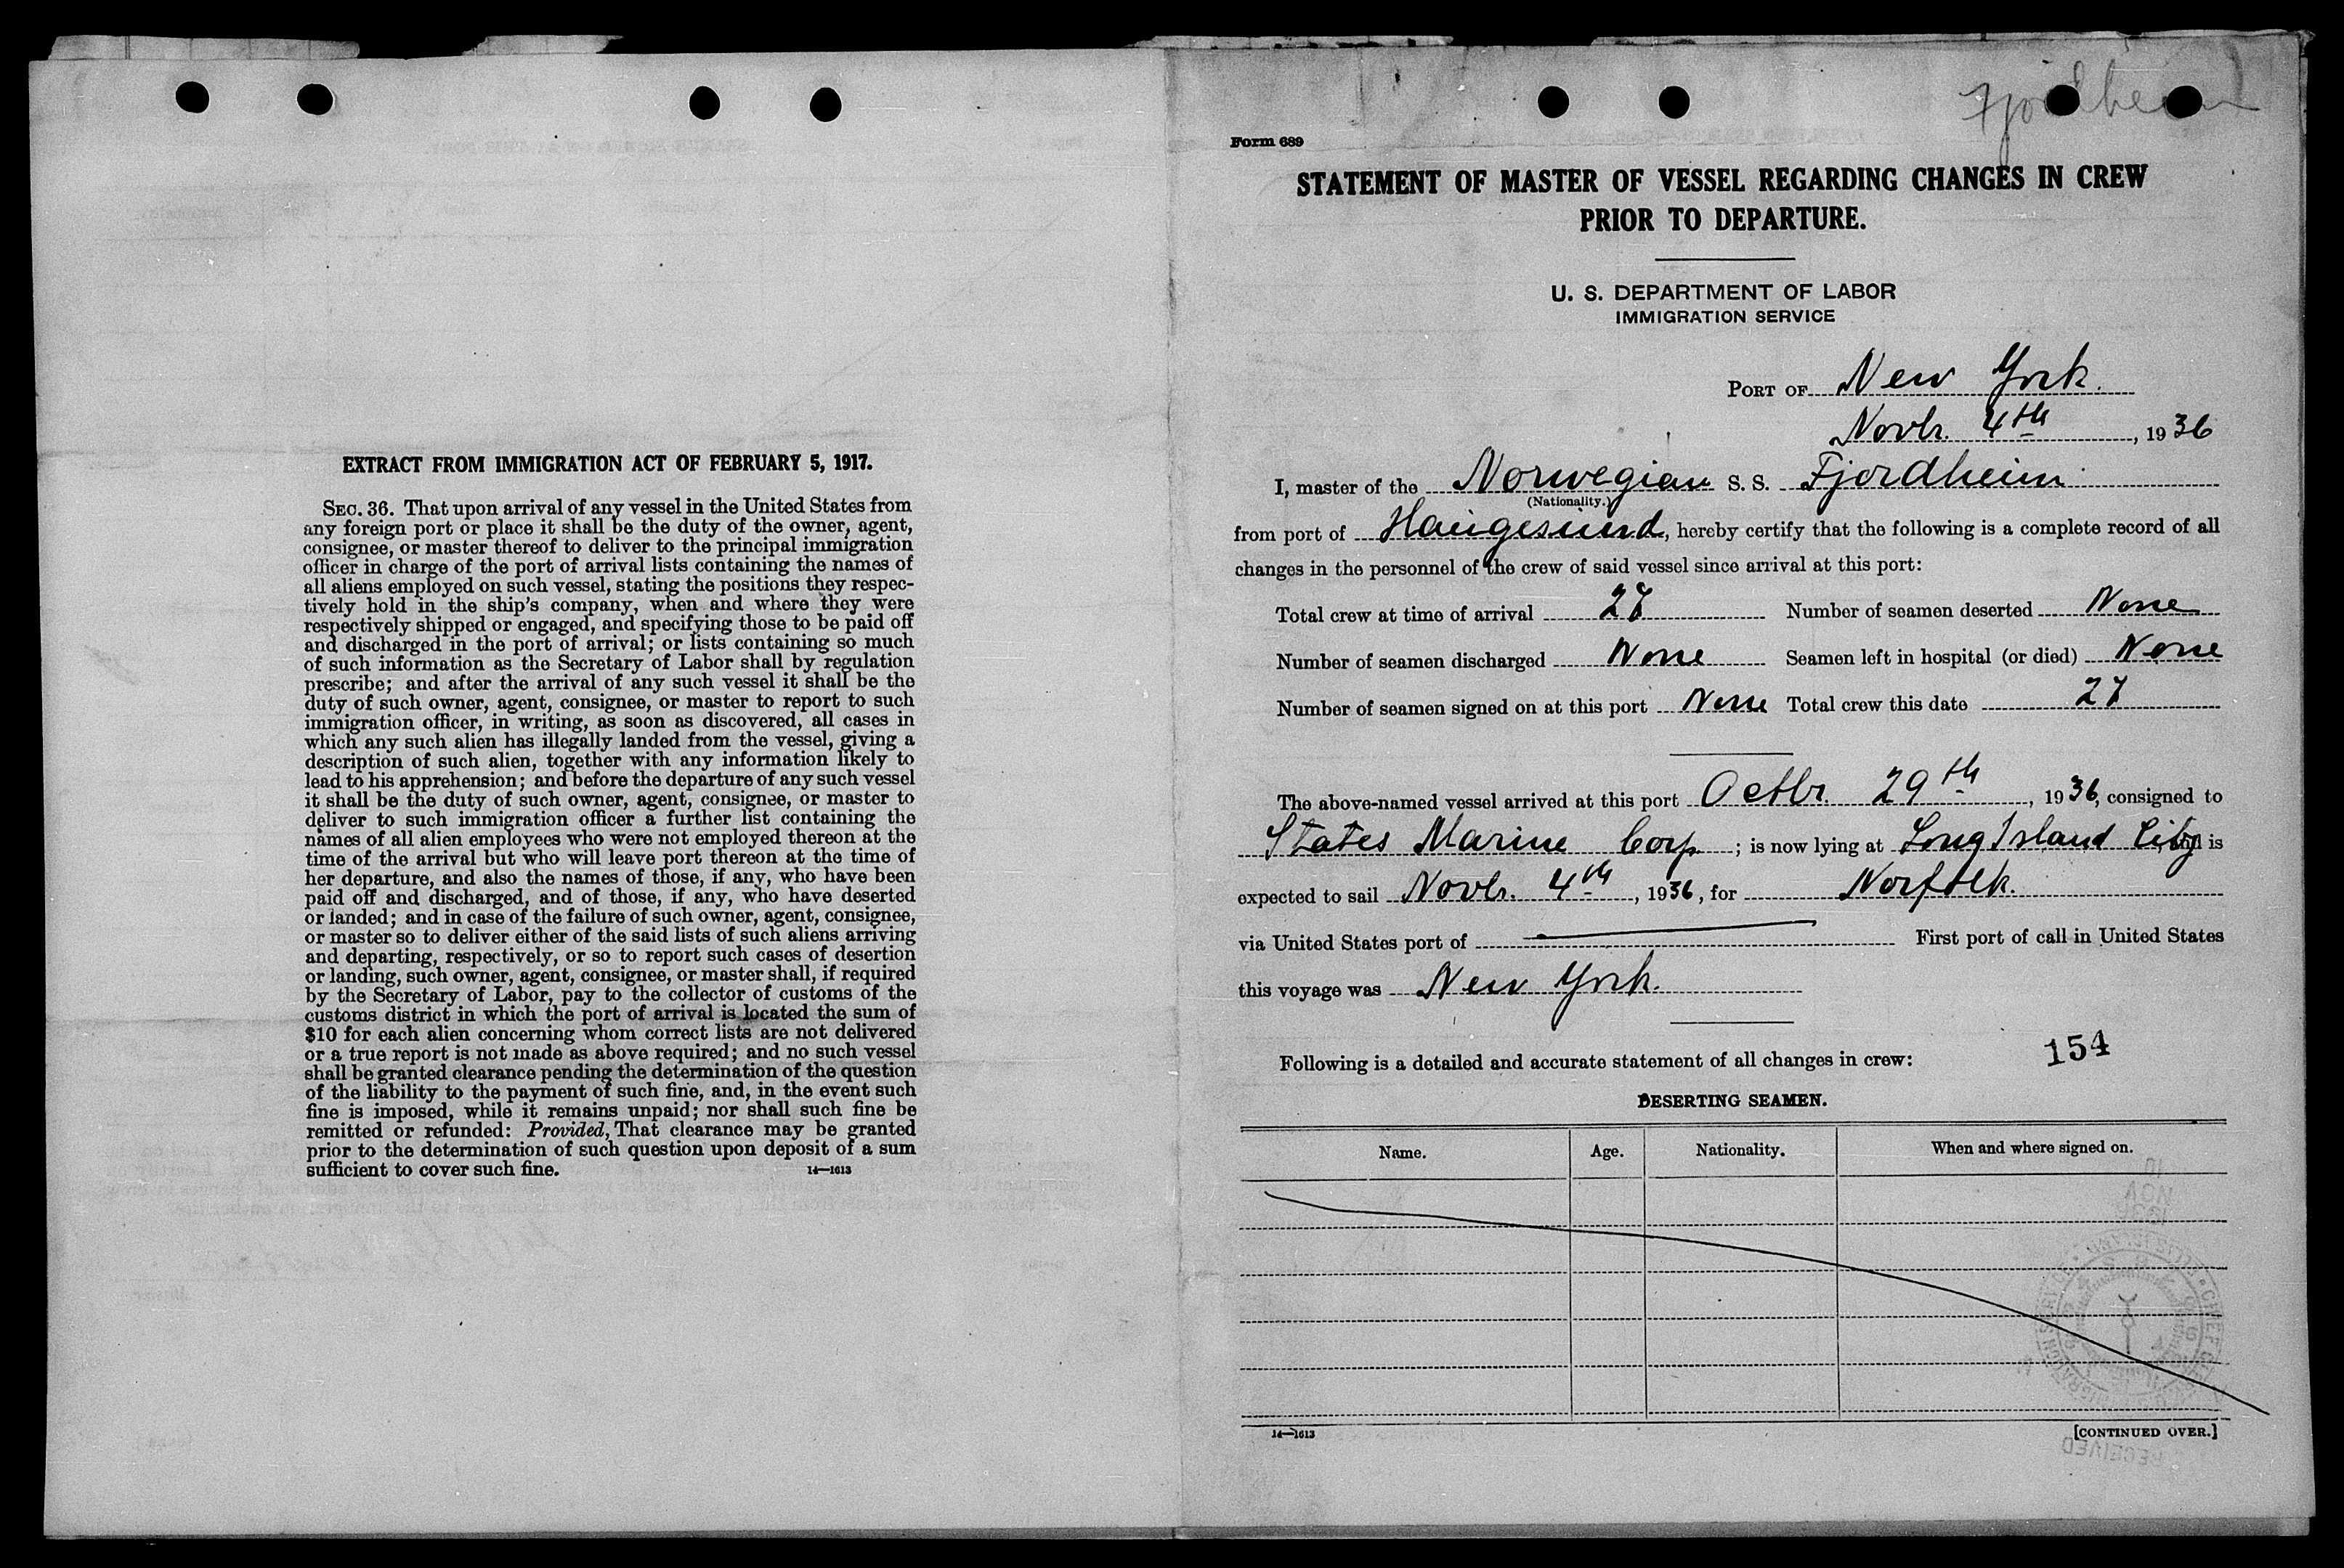 EXTRACT FROM IMMIGRATION ACT OF FEBRUARY 5, 1917.
SEC. 36. That upon arrival of any vessel in the United States from
any foreign port or place it shall be the duty of the owner, agent,
consignee, or master thereof to deliver to the principal immigration
officer in charge of the port of arrival lists containing the names of
all aliens employed on such vessel, stating the positions they respec-
tively hold in the ship's company, when and where they were
respectively shipped or engaged, and specifying those to be paid off
and discharged in the port of arrival; or lists containing so much
of such information as the Secretary of Labor shall by regulation
prescribe; and after the arrival of any such vessel it shall be the
duty of such owner, agent, consignee, or master to report to such
immigration officer, in writing, as soon as discovered, all cases in
which any such alien has illegally landed from the vessel, giving a
description of such alien, together with any information likely to
lead to his apprehension; and before the departure of any such vessel
it shall be the duty of such owner, agent, consignee, or master to
deliver to such immigration officer a further list containing the
names of all alien employees who were not employed thereon at the
time of the arrival but who will leave port thereon at the time of
her departure, and also the names of those, if any, who have been
paid off and discharged, and of those, if any, who have deserted
or landed; and in case of the failure of such owner, agent, consignee,
or master so to deliver either of the said lists of such aliens arriving
and departing, respectively, or so to report such cases of desertion
or landing, such owner, agent, consignee, or master shall, if required
by the Secretary of Labor, pay to the collector of customs of the
customs district in which the port of arrival is located the sum of
$10 for each alien concerning whom correct lists are not delivered
or a true report is not made as above required; and no such vessel
shall be granted clearance pending the determination of the question
of the liability to the payment of such fine, and, in the event such
fine is imposed, while it remains unpaid; nor shall such fine be
remitted or refunded: Provided, That clearance may be granted
prior to the determination of such question upon deposit of a sum
sufficient to cover such fine. 14—1613
Fjordheim
Form 689
STATEMENT OF MASTER OF VESSEL REGARDING CHANGES IN CREW
PRIOR TO DEPARTURE.
U. S. DEPARTMENT OF LABOR
IMMIGRATION SERVICE
PORT OF New York.
Novbr. 4th, 1936
I, master of the Norwegian S. S. Fjordheim
(Nationality.)
from port of Haugesund, hereby certify that the following is a complete record of all
changes in the personnel of the crew of said vessel since arrival at this port:
Total crew at time of arrival 27 Number of seamen deserted None
Number of seamen discharged None Seamen left in hospital (or died) None
Number of seamen signed on at this port None Total crew this date 27
The above-named vessel arrived at this port Octbr. 29th, 1936, consigned to
States Marine Corp; is now lying at Long Island City, and is
expected to sail Novbr. 4th, 1936, for Norfolk.
via United States port of First port of call in United States
this voyage was New York.
Following is a detailed and accurate statement of all changes in crew: 154
DESERTING SEAMEN.
Name. Age. Nationality. When and where signed on.
14—1613 [CONTINUED OVER.]